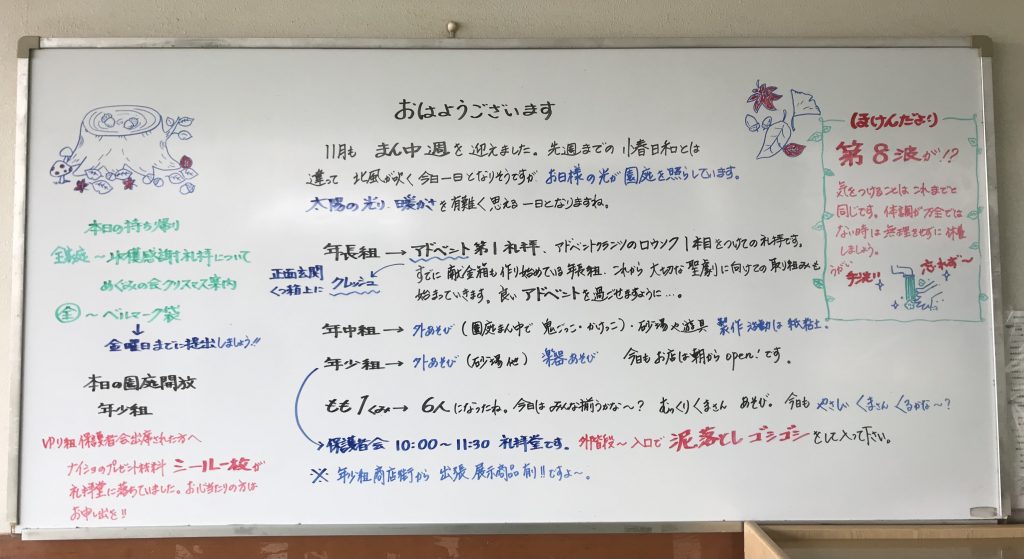 おはようございます
11月も まん中週を迎えました。先週までの 小春日和とは
違って 北風が吹く今日一日となりそうですが お日様の光が園庭を照らしています。
太陽の光り、暖かさを有難く思える一日となりますね。
年長組 → アドベント第1礼拝、アドベントクランツのロウソク1本目をつけての礼拝です。
正面玄関
くつ箱上に クレッシュ
すでに献金箱も作り始めている年長組、これから大切な聖劇に向けての取り組みも
始まっていきます。良いアドベントを過ごせますように…。
年中組 → 外あそび (園庭まん中で 鬼ごっこ・かけっこ)・砂場や遊具 製作活動は紙粘土。
年少組 → 外あそび (砂場 他) 楽器あそび 今日もお店は朝から open! です。
もも1くみ → 6人になったね。今日はみんな揃うかな〜? むっくりくまさん あそび。今日も やさしい くまさん くるかな〜?
→ 保護者会 10:00〜11:30 礼拝堂です。外階段〜入口で 泥落とし ゴシゴシをして入って下さい。
※ 年少組商店街から 出張 展示商品有り!! ですよ〜。
本日の持ち帰り
全家庭 〜 収穫感謝礼拝について
めぐみの会クリスマス案内
㊎ 〜 ベルマーク袋
↓
金曜日までに提出しましょう!!
本日の園庭開放
年少組
ゆり組 保護者会出席された方へ
ナイショのプレゼント材料 シール一枚が
礼拝堂に落ちていました。お心当たりの方は
お申し出を!!
(ほけんだより)
第8波が!?
気をつけることは これまでと
同じです。体調が万全では
ない時は 無理をせずに休養
しましょう。
うがい 手洗い 忘れず〜